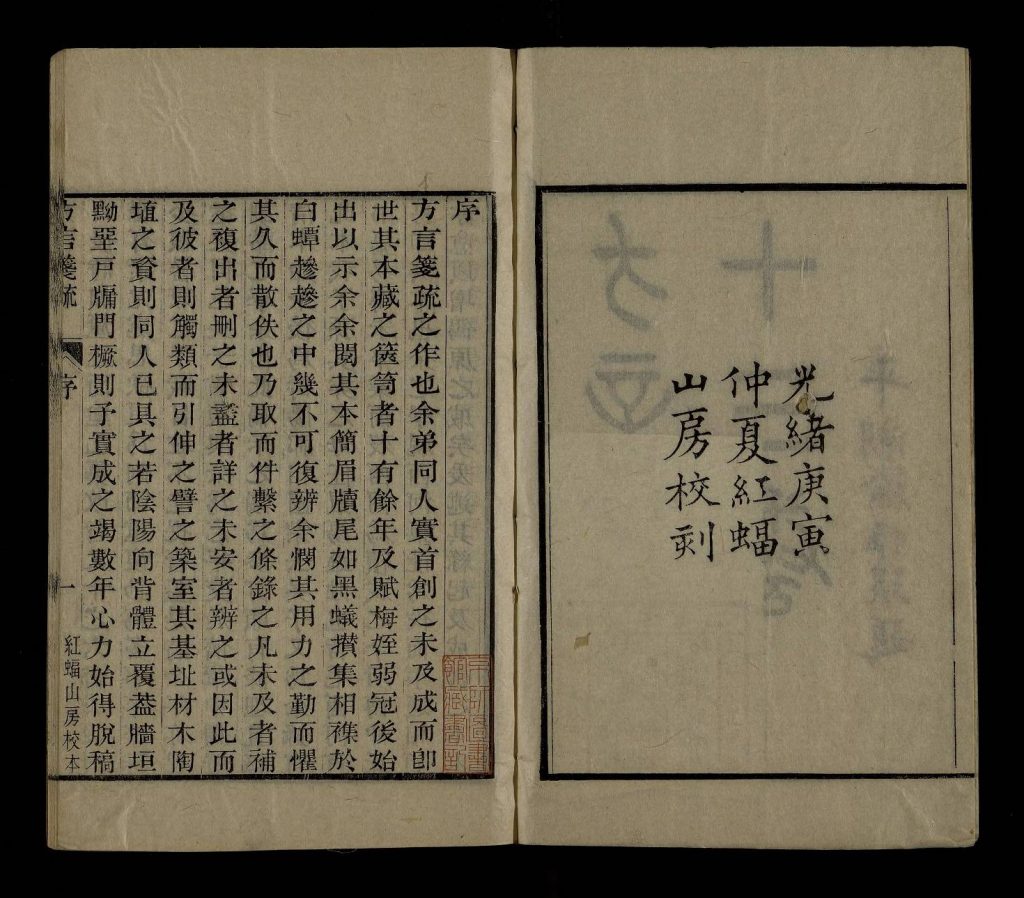 光緒庚寅
仲夏紅蝠
山房校刻
序
方言箋疏之作也余弟同人實首創之未及成而卽
世其本藏之篋笥者十有餘年及賦梅姪弱冠後始
出以示余余閱其本簡眉牘尾如黑蟻攢集相襍於
白蟫趁趁之中幾不可復辨余憫其用力之勤而懼
其久而散佚也乃取而件繫之條錄之凡未及者補
之複出者刪之未盡者詳之未安者辨之或因此而
及彼者則觸類而引伸之譬之築室其基址材木陶
埴之資則同人已具之若陰陽向背體立覆葢牆垣
黝堊戶牖門橛則子實成之竭數年心力始得脫稿
方言箋疏
序
一
紅蝠山房校本